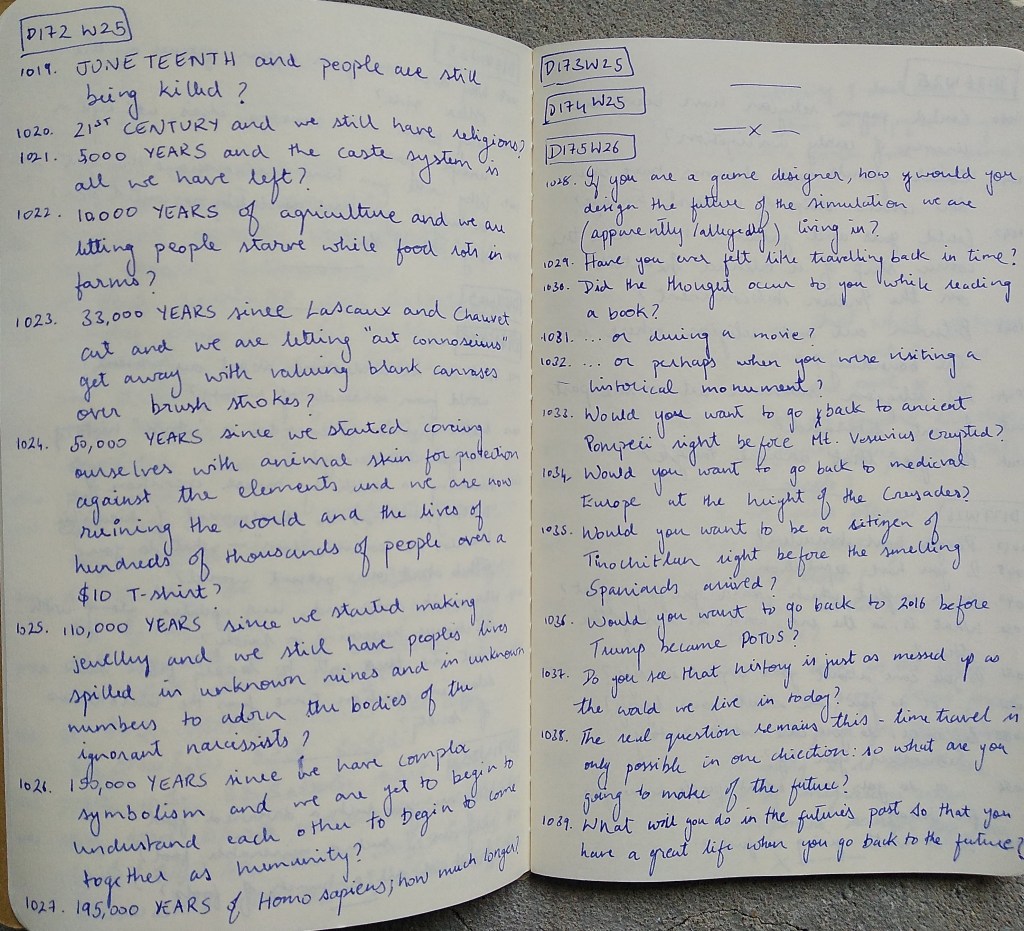 D172 W25
1019. JUNETEENTH and people are still
being killed?
1020. 21ST CENTURY and we still have religions?
1021. 5000 YEARS and the caste system is
all we have left?
1022. 10,000 YEARS of agriculture and we are
letting people starve while food rots in
farms?
1023. 33,000 YEARS since Lascaux and Chauvet
art and we are letting "art connoseiurs"
get away with valuing blank canvases
over brush strokes?
1024. 50,000 YEARS since we started covering
ourselves with animal skin for protection
against the elements and we are now
ruining the world and the lives of
hundreds of thousands of people over a
$10 T-shirt?
1025. 110,000 YEARS since we started making
jewellry and we still have peoples lives
spilled in unknown mines and in unknown
numbers to adorn the bodies of the
ignorant narcissists?
1026. 150,000 YEARS since we have complex
symbolism and we are yet to begin to
understand each other to begin to come
together as humanity?
1027. 195,000 YEARS of Homo sapiens; how much longer?
D173W25
D174W25
—x—
D175W26
1028. If you are a game designer, how would you
design the future of the simulation we are
(apparently/allegedly) living in?
1029. Have you ever felt like travelling back in time?
1030. Did the thought occur to you while reading
a book?
1031. ... or during a movie?
1032. ... or perhaps when you were visiting a
historical monument?
1033. Would you want to go back to ancient
Pompeii right before Mt. Vesuvius erupted?
1034. Would you want to go back to medieval
Europe at the height of the Crusades?
1035. Would you want to be a sitizen of
Tinochitlan right before the smelling
Spaniards arrived?
1036. Would you want to go back to 2016 before
Trump became POTUS?
1037. Do you see that history is just as messed up as
the world we live in today?
1038. The real question remains this - time travel is
only possible in one direction: so what are you
going to make of the future?
1039. What will you do in the future's past so that you
have a great life when you go back to the future?